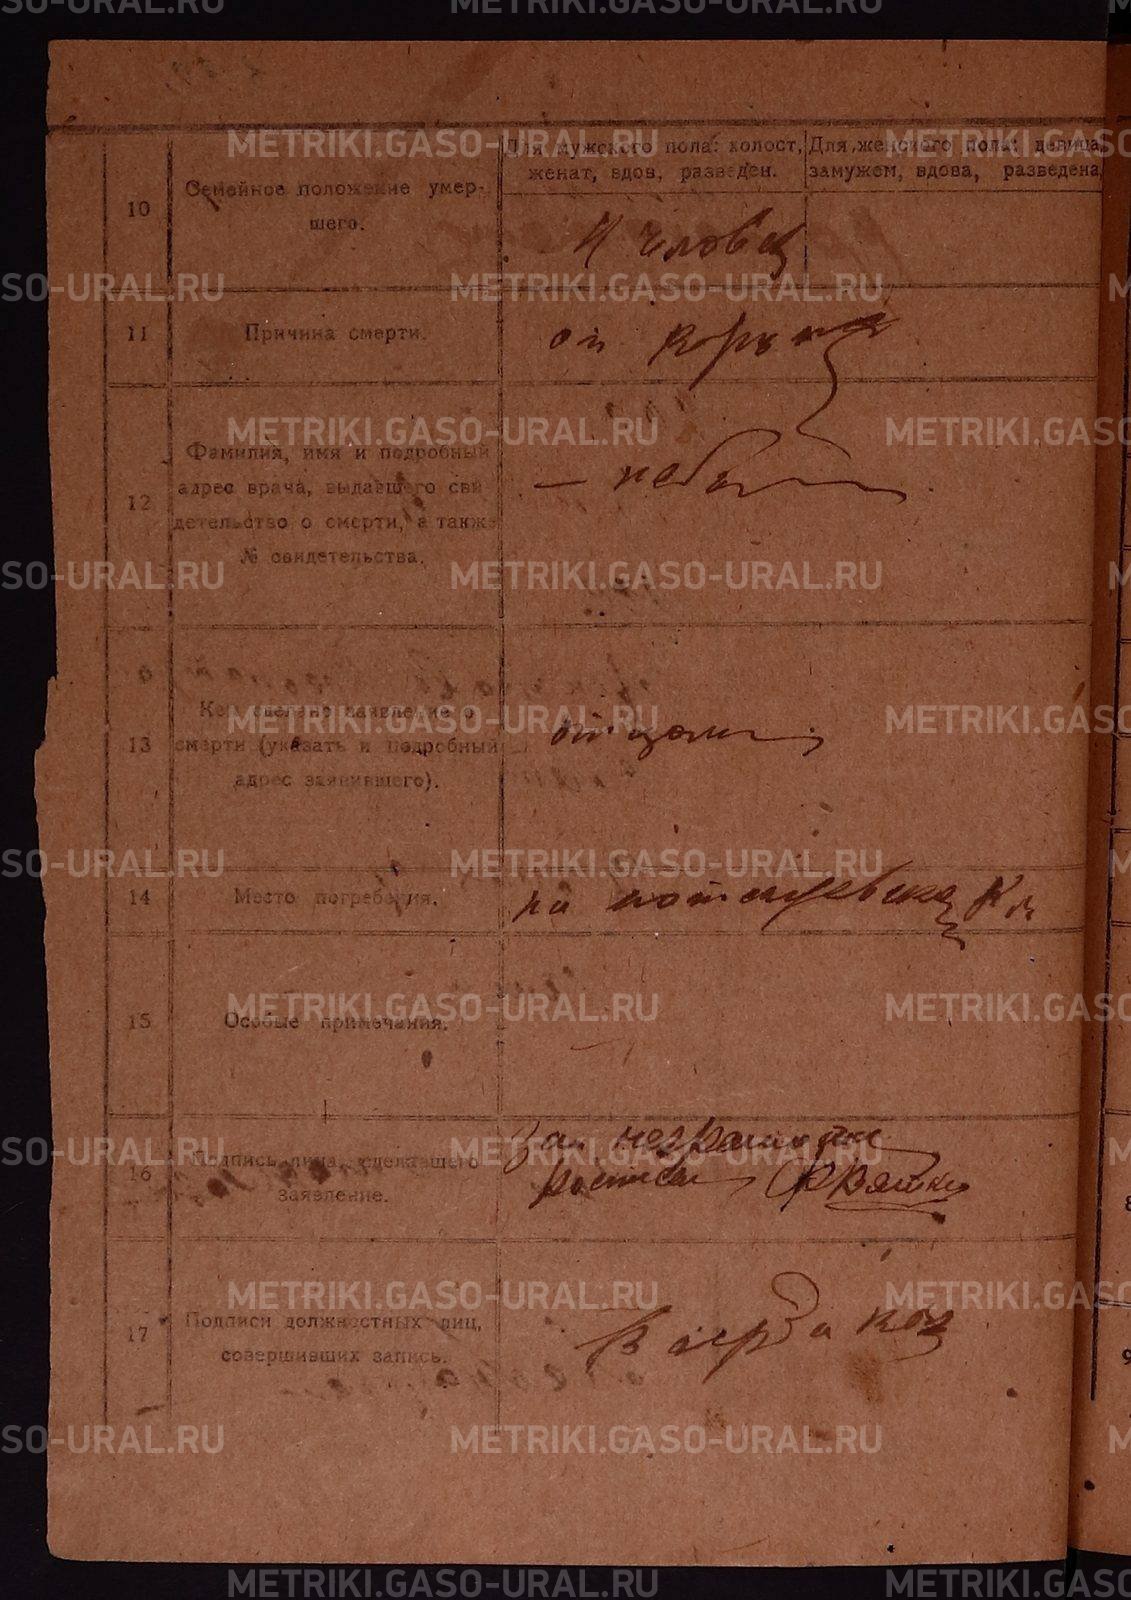 10
Семейное положение умер-
шего.
Для мужского пола: холост,
женат, вдов, разведен.
Для женского пола: девица,
замужем, вдова, разведена.
4 человек
11
Причина смерти.
от
12
Фамилия, имя и подробный
адрес врача, выдавшего сви
детельство о смерти, а также
№ свидетельства.
— небы
13
Кем сделано заявление о
смерти (указать и подробный
адрес заявившего).
отцом
14
Место погребения.
на
15
Особые примечания.
16
Подпись лица, сделавшего
заявление.
За неграмотн
росписал
17
Подписи должностных лиц,
совершивших запись.
METRIKI.GASO-URAL.RU